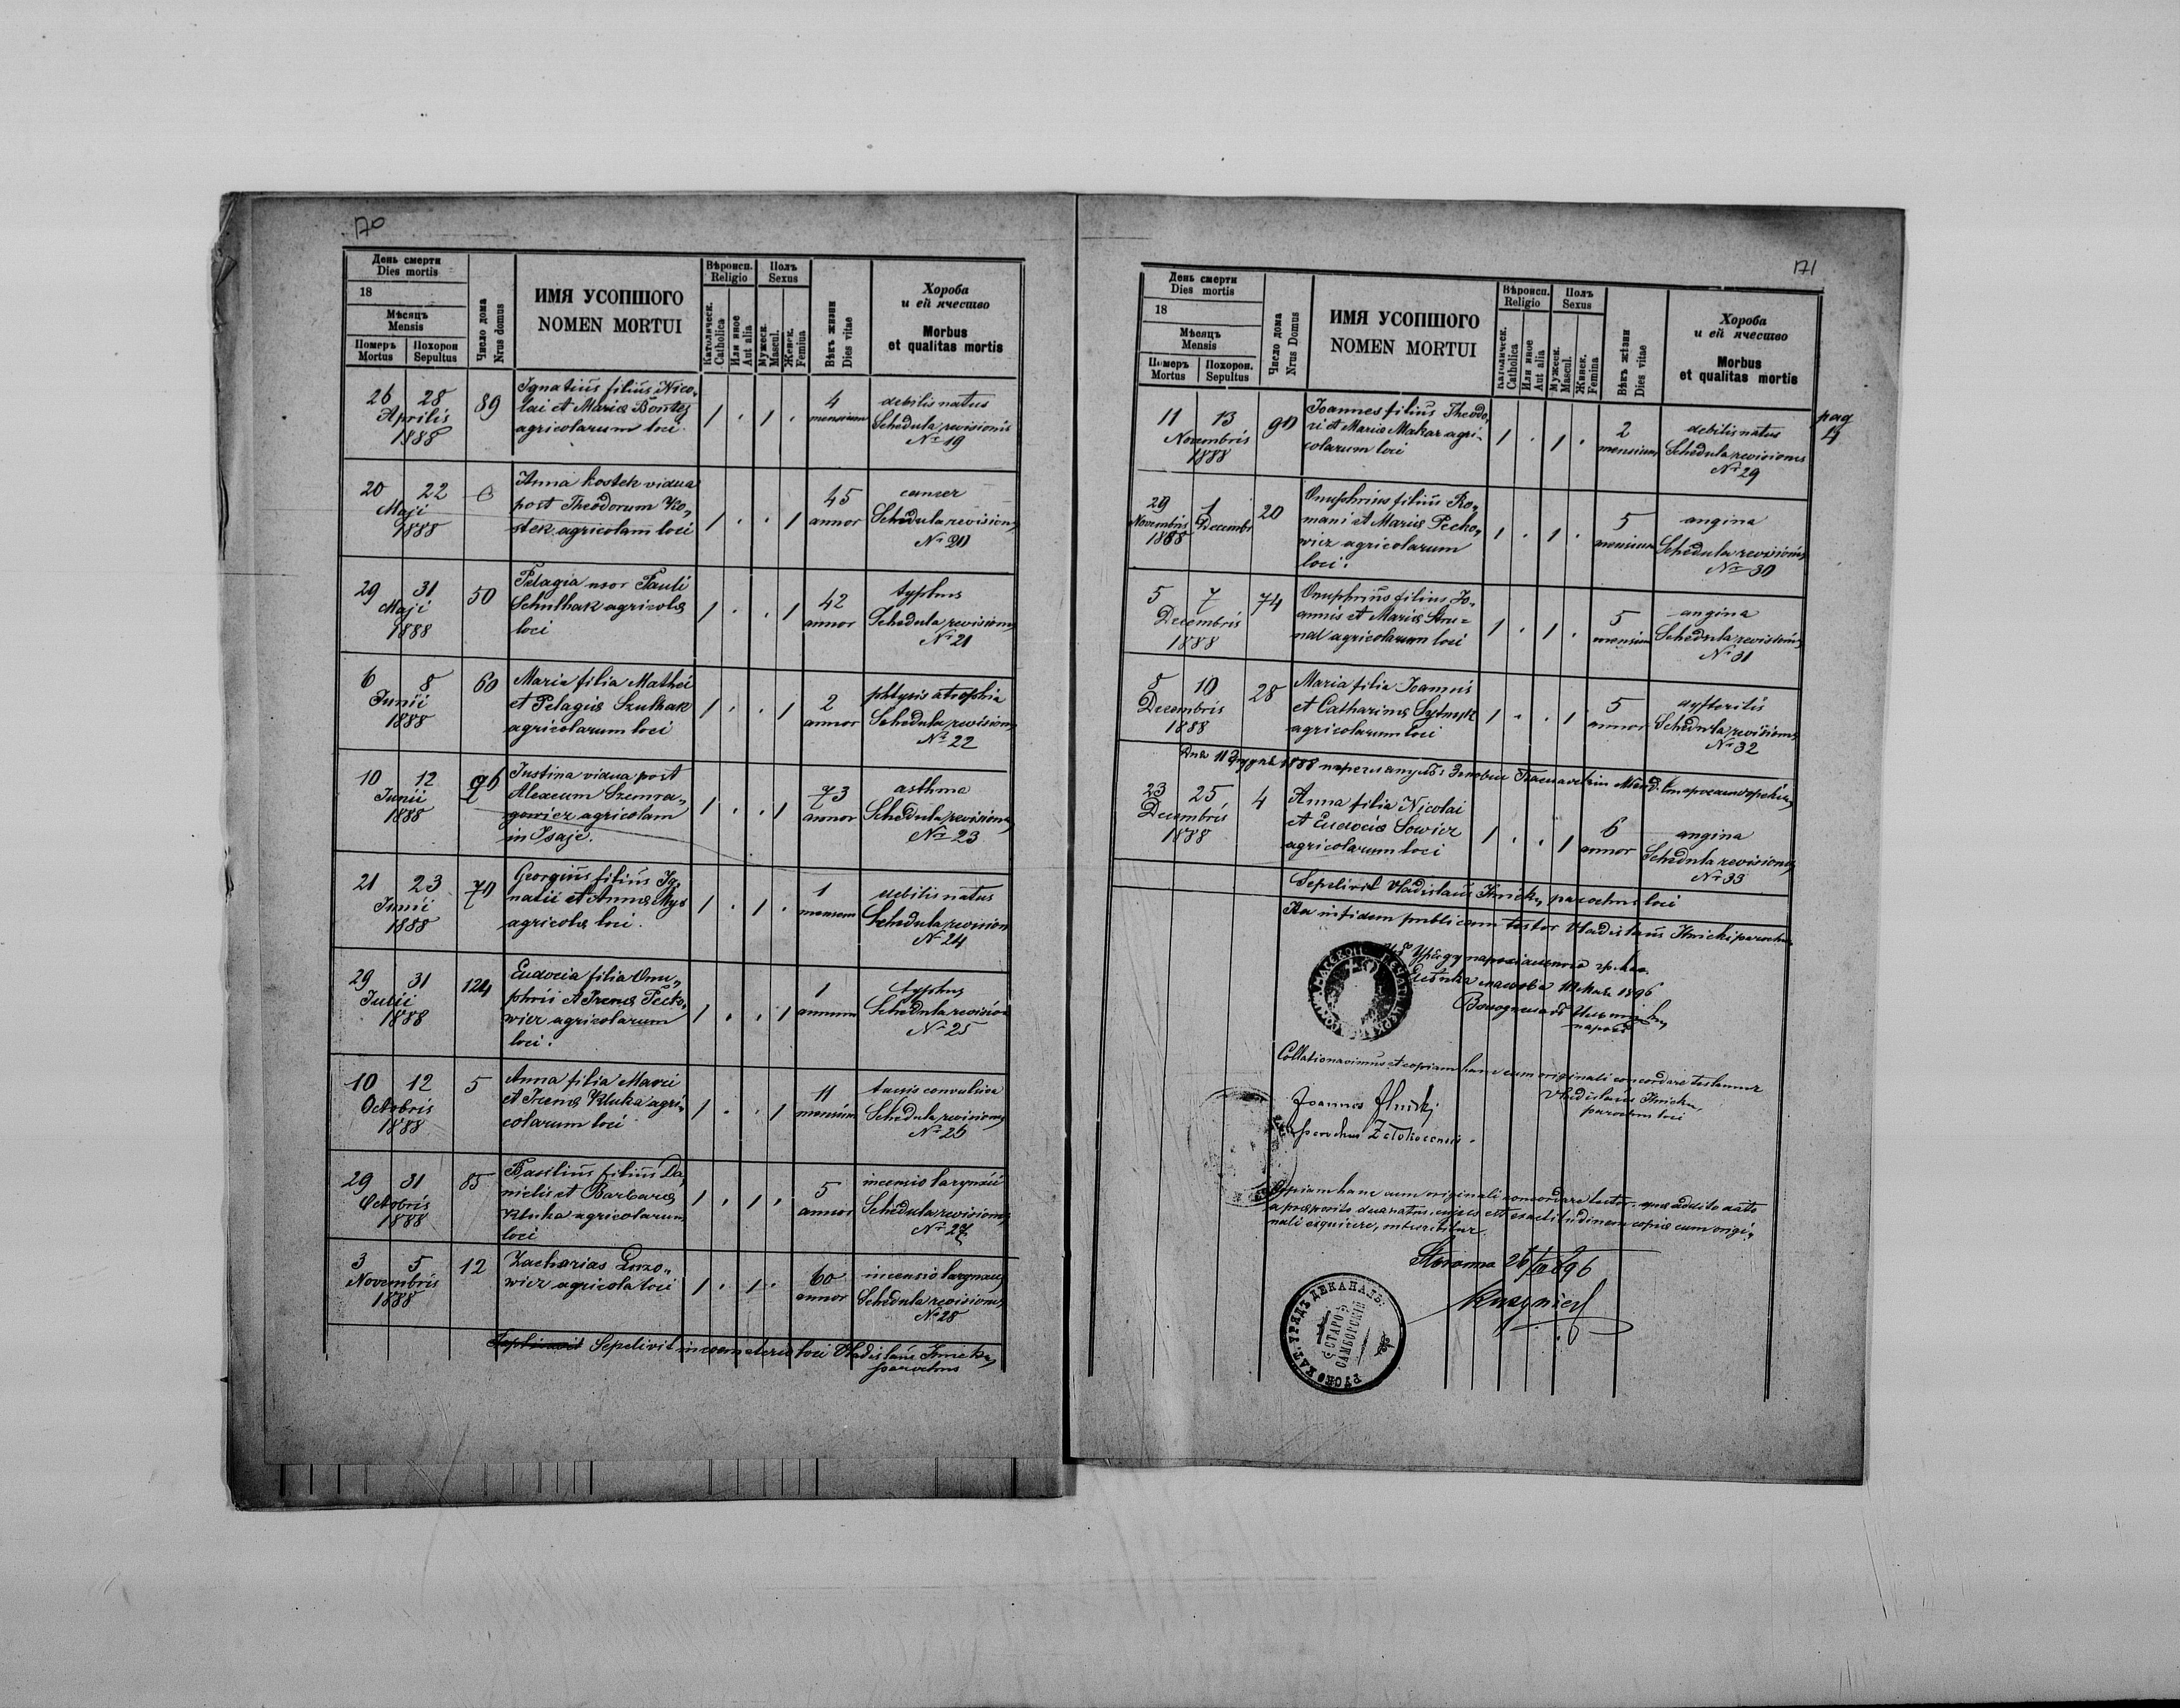 170
День смерти
Dies mortis
18
Мѣсяцъ
Mensis
Померъ
Mortus
Похорон
Sepultus
Число дома
Nrus domus
ИМЯ УСОПШОГО
NOMEN MORTUI
Вѣроисп.
Religio
Католическ.
Catholica
Или иное
Aut alia
Полъ
Sexus
Мужеск.
Mascul.
Женск.
Femina
Вѣкъ жизни
Dies vitae
Хороба
и ей ячество
Morbus
et qualitas mortis
26 28
Aprilis
1888
89
Ignatius filius Nico„
lai et Mariæ Bontey
agricolarum loci
1 . 1 .
4
mensium
debilis natus
Schedula revisionis
No 19
20 22
Maji
1888
Anna Kostek vidua
post Theodorum Ko„
stek agricolam loci
1 . . 1
45
annor
cancer
Schedula revisionis
No 20
29 31
Maji
1888
50
Pelagia uxor Pauli
Schulhak agricolæ
loci
1 . . 1
42
annor
typhus
Schedula revisionis
No 21
6 8
Junii
1888
60
Maria filia Mathei
et Pelagiæ Szulhak
agricolarum loci
1 . . 1
2
annor
phtysis atrophia
Schedula revisionis
No 22
10 12
Junii
1888
96
Justina vidua post
Alexium
agricolam
in Isaje.
1 . . 1
73
annor
asthma
Schedula revisionis
No 23
21 23
Junii
1888
70
Georgius filius Ig„
natii et Annæ Mys
agricolæ loci.
1 . 1 .
1
mensem
debilis natus
Schedula revision
No 24
29 31
Julii
1888
124
Eudocia filia Onu„
phrii et Irenæ Pecko„
wicz agricolarum
loci.
1 . . 1
1
annum
typhus
Schedula revision
No 25
10 12
Octobris
1888
5
Anna filia Marci
et Irenæ Kluka agri„
colarum loci
1 . . 1
11
mensium
tussis convulsiva
Schedula revisionis
No 26
29 31
Octobris
1888
85
Basilius filius Da„
nielis et Barbaræ
Kluka agricolarum
loci
1 . 1 .
5
annor
incensio laryncis
Schedula revisionis
No 27
3 5
Novembris
1888
12
Zacharias Lozo„
wicz agricola loci
1 . 1 .
60
annor
incensio laryncis
Schedula revisionis
No 28
Sepelivit in coemeterio loci Vladislaus Ilnicky
parochus
171
День смерти
Dies mortis
18
Мѣсяцъ
Mensis
Померъ
Mortus
Похорон.
Sepultus
Число дома
Nrus Domus
ИМЯ УСОПШОГО
NOMEN MORTUI
Вѣроисп.
Religio
Католическ.
Catholica
Или иное
Aut alia
Полъ
Sexus
Мужеск.
Mascul.
Женск.
Femina
Вѣкъ жізни
Dies vitae
Хороба
и ей ячество
Morbus
et qualitas mortis
pag
4
11 13
Novembris
1888
90
Joannes filius Theodo„
ri et Mariæ Makar agri„
colarum loci
1 . 1 .
2
mensium
debilis natus
Schedula revisionis
No 29
29 1
Novembris Decembr
1888
20
Onuphrius filius Ro„
mani et Mariæ Pecko„
wicz agricolarum
loci.
1 . 1 .
5
mensium
angina
Schedula revisionis
No 30
5 7
Decembris
1888
74
Onuphrius filius Jo„
annis et Mariæ
agricolarum loci
1 . 1 .
5
mensium
angina
Schedula revisionis
No 31
8 10
Decembris
1888
28
Maria filia Joannis
et Catharinæ Sytnyk
agricolarum loci
1 . . 1
5
annor
dyfteritis
Schedula revisionis
No 32
Дня 11 Грудня 1888
23 25
Decembris
1888
4
Anna filia Nicolai
et Eudociæ Sowicz
agricolarum loci
1 . . 1
6
annor
angina
Schedula revisionis
No 33
Sepelivit Vladislaus Ilnicky parochus loci
Ita in fidem publicam testor Vladislaus Ilnicki parochus
1896
Collationavimus et copiam hanc cum originali concordare testamur
Vladislaus Ilnicky
parochus loci
Joannes Ilnicki
parochus
Copiam hanc cum originali concordare testor,
Starama 26/ 896
РУСКО КАТ. УРЯДЪ ДЕКАНАЛЬ.
СТАРО-
САМБОРСКІЙ